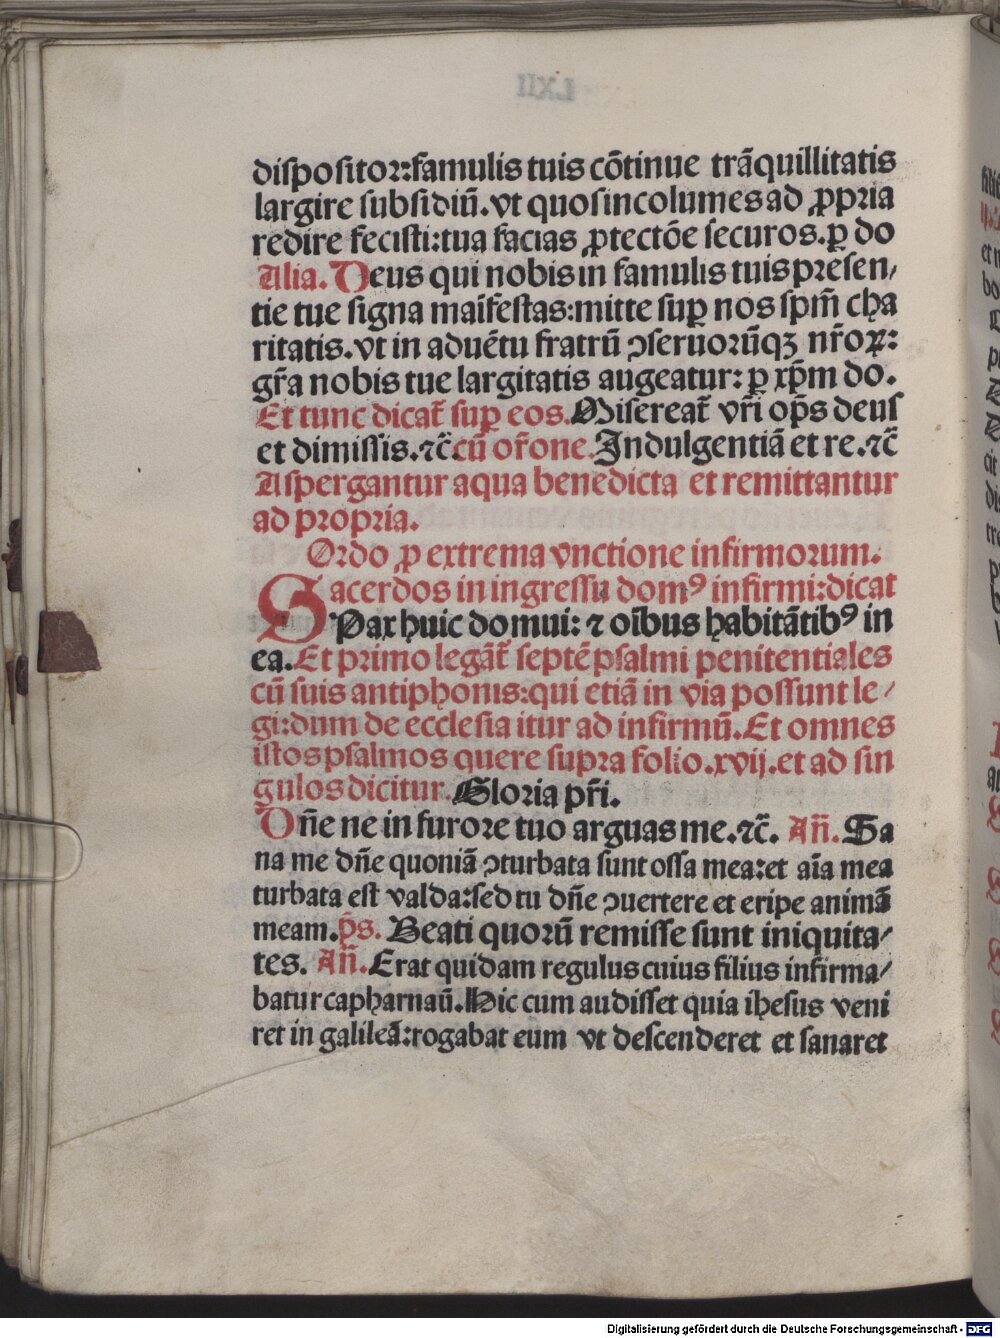 dispositor:famulis tuis cōtinue trāquillitatis
largire subsidiū.vt quos incolumes ad ꝓpria
redire fecisti:tua facias ꝓtectōe securos.ꝑ do
Alia. Deus qui nobis in famulis tuis presen/
tie tue signa maīfestas:mitte suꝑ nos spm̄ cha
ritatis.vt in aduētu fratrū ↄseruorūqꝫ nr̄oꝝ:
gr̄a nobis tue largitatis augeatur:ꝑ xp̄m do.
Et tunc dicat̄ suꝑ eos. Misereat̄ vr̄i op̄s deus
et dimissis.⁊c̄.cū or̄one. Indulgentiā et re.⁊c̄
Aspergantur aqua benedicta et remittantur
ad propria.
Ordo ꝓ extrema vnctione infirmorum.
Sacerdos in ingressu domꝰ infirmi:dicat
Pax huic domui: ⁊ oībus habitātibꝰ in
ea. Et primo legāt̄ septē psalmi penitentiales
cū suis antiphonis:qui etiā in via possunt le/
gi:dum de ecclesia itur ad infirmū. Et omnes
istos psalmos quere supra folio.xvij.et ad sin
gulos dicitur. Gloria pr̄i.
Dn̄e ne in furore tuo arguas me.⁊c̄. An̄. Sa
na me dn̄e quoniā ↄturbata sunt ossa mea:et aīa mea
turbata est valda:sed tu dn̄e ↄuertere et eripe animā
meam. p̄s. Beati quorū remisse sunt iniquita/
tes. An̄. Erat quidam regulus cuius filius infirma/
batur capharnaū. Hic cum audisset quia ihesus veni
ret in galileā:rogabat eum vt descenderet et sanaret
Digitalisierung gefördert durch die Deutsche Forschungsgemeinschaft - DFG